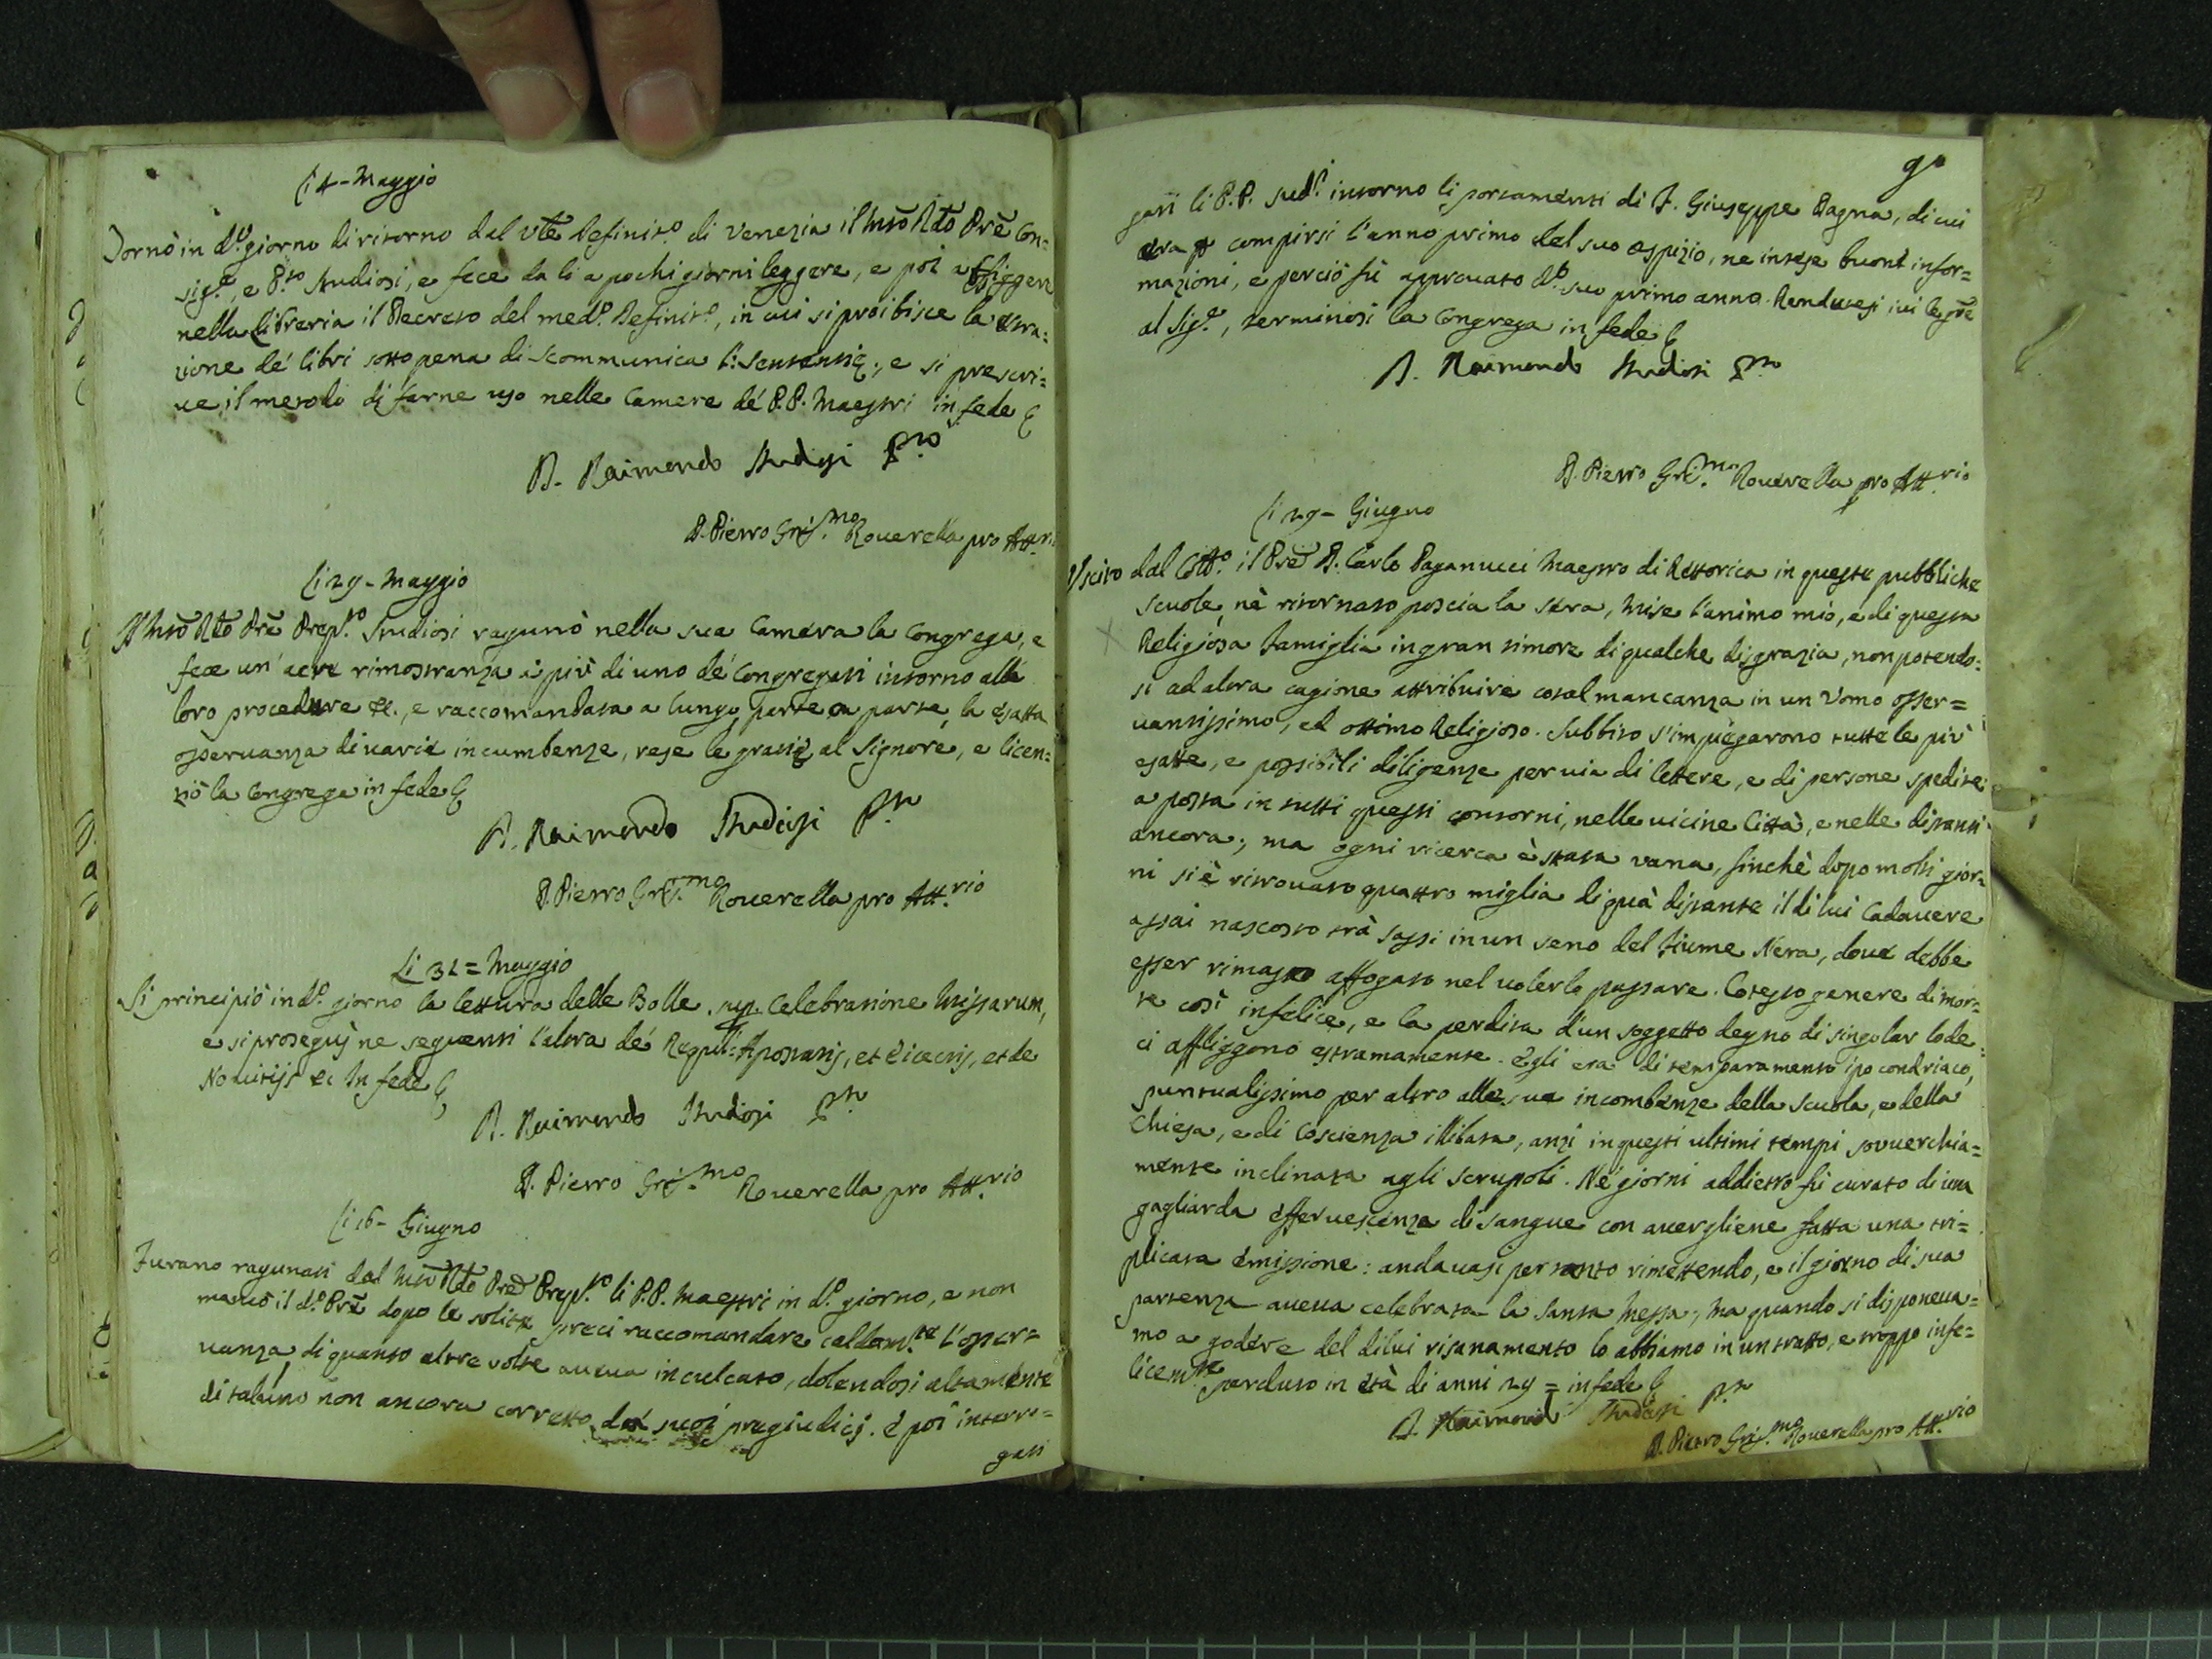 li 4 - Maggio
Tornò in d.º giorno di ritorno dal Vñte Definit.º di Venezia il M̃to R̃do Prẽ Con=
sig.e, e P.to Studiosi, e fece da li a pochi giorni leggere, e poi affiggere
nella Libreria il Decreto del med.º Definit.º, in cui si proibisce la estra=
zione de' libri sotto pena di Scommunica l: sententię, e si prescri=
ve il metodo di farne uso nelle Camere dé P.P. Maestri in fede
D. Raimondo Studiosi P.to
D. Pietro Gris.mo Roverella pro Att.rio
li 29 - Maggio
Il M̃to R̃do Prẽ Prep.to Studiosi ragunò nella sua Camera la Congrega, e
fece un' acre rimostranza à più di uno dé Congregati intorno alle
loro procedure &c., e raccomandata a lungo parte a parte la esatta
osservanza di varie incumbenze, rese le grazie al Signore, e licen=
ziò la Congrega in fede
D. Raimondo Studiosi P.to
D. Pietro Gris.mo Roverella pro Att.rio
Li 31 = Maggio
Si principiò in d.º giorno la lettura delle Bolle sup. Celebratione Missarum,
e si proseguj ne seguenti l'altra dé Regul: Apostatis, et Eiectis, et de
Novitijs &c In fede
D. Raimondo Studiosi P.to
D. Pietro Gris.mo Roverella pro Att.rio
li 16 - Giugno
Furano ragunati dal M̃to R̃do Prẽ Prep.to li P.P. Maestri in d.º giorno, e non
mancò il d.º Prẽ dopo le solite preci raccomandare caldam.te l'osser=
vanza di quanto altre volte aveva inculcato, dolendosi altamente
di taluno non ancora corretto dei suoi pregiudicj. E poi interro=
gati
9
gati li P.P. sud.i intorno li portamenti di F. Giuseppe Pagna, di cui
era p compirsi l'anno primo del suo Ospizio, ne intese buone infor=
mazioni, e perciò fù approvato d.º suo primo anno. Rendutesi ivi le grẽ
al Sig.e, terminosi la Congrega in fede
D. Raimondo Studiosi P.to
D. Pietro Gris.mo Roverella pro Att.rio
li 29 - Giugno
Uscito dal Coll.º il Prẽ D. Carlo Paganucci Maestro di Rettorica in queste pubbliche
Scuole, nè ritornato poscia la sera, mise l'animo mio, e di questa
Religiosa Famiglia in gran timore di qualche disgrazia, non potendo=
si ad altra cagione attribuire cotal mancanza in un Uomo osser=
vantissimo, ed ottimo Religioso. Subbito s'impiegarono tutte le più
esatte, e possibili diligenze per via di lettere, e di persone spedite
a posta in tutti questi contorni, nelle vicine Città, e nelle distanti
ancora; ma ogni ricerca è stata vana, finchè dopo molti gior=
ni si è ritrovato quattro miglia di quà distante il di lui Cadavere
assai nascosto trà sassi in un seno del Fiume Nera, dove debbe
esser rimasto affogato nel volerlo passare. Cotesto genere di mor=
te così infelice, e la perdita d'un soggetto degno di singolar lode
ci affliggono estramamente. Egli era di temparamento ipocondriaco,
puntualissimo per altro alle sue incombenze della scuola, e della
Chiesa, e di Coscienza illibata, anzi in questi ultimi tempi soverchia=
mente inclinata agli scrupoli. Né giorni addietro fù curato di una
gagliarda effervescenza di sangue con avergliene fatta una tri=
plicata emissione: andavasi per tanto rimettendo, e il giorno di sua
partenza aveva celebrata la Santa Messa; ma quando si disponeva=
mo a godere del dilui risanamento lo abbiamo in un tratto, e troppo infe=
licem.te perduto in età di anni 29 = in fede
D. Raimondo Studiosi P.to
D. Pietro Gris.mo Roverella pro Att.rio